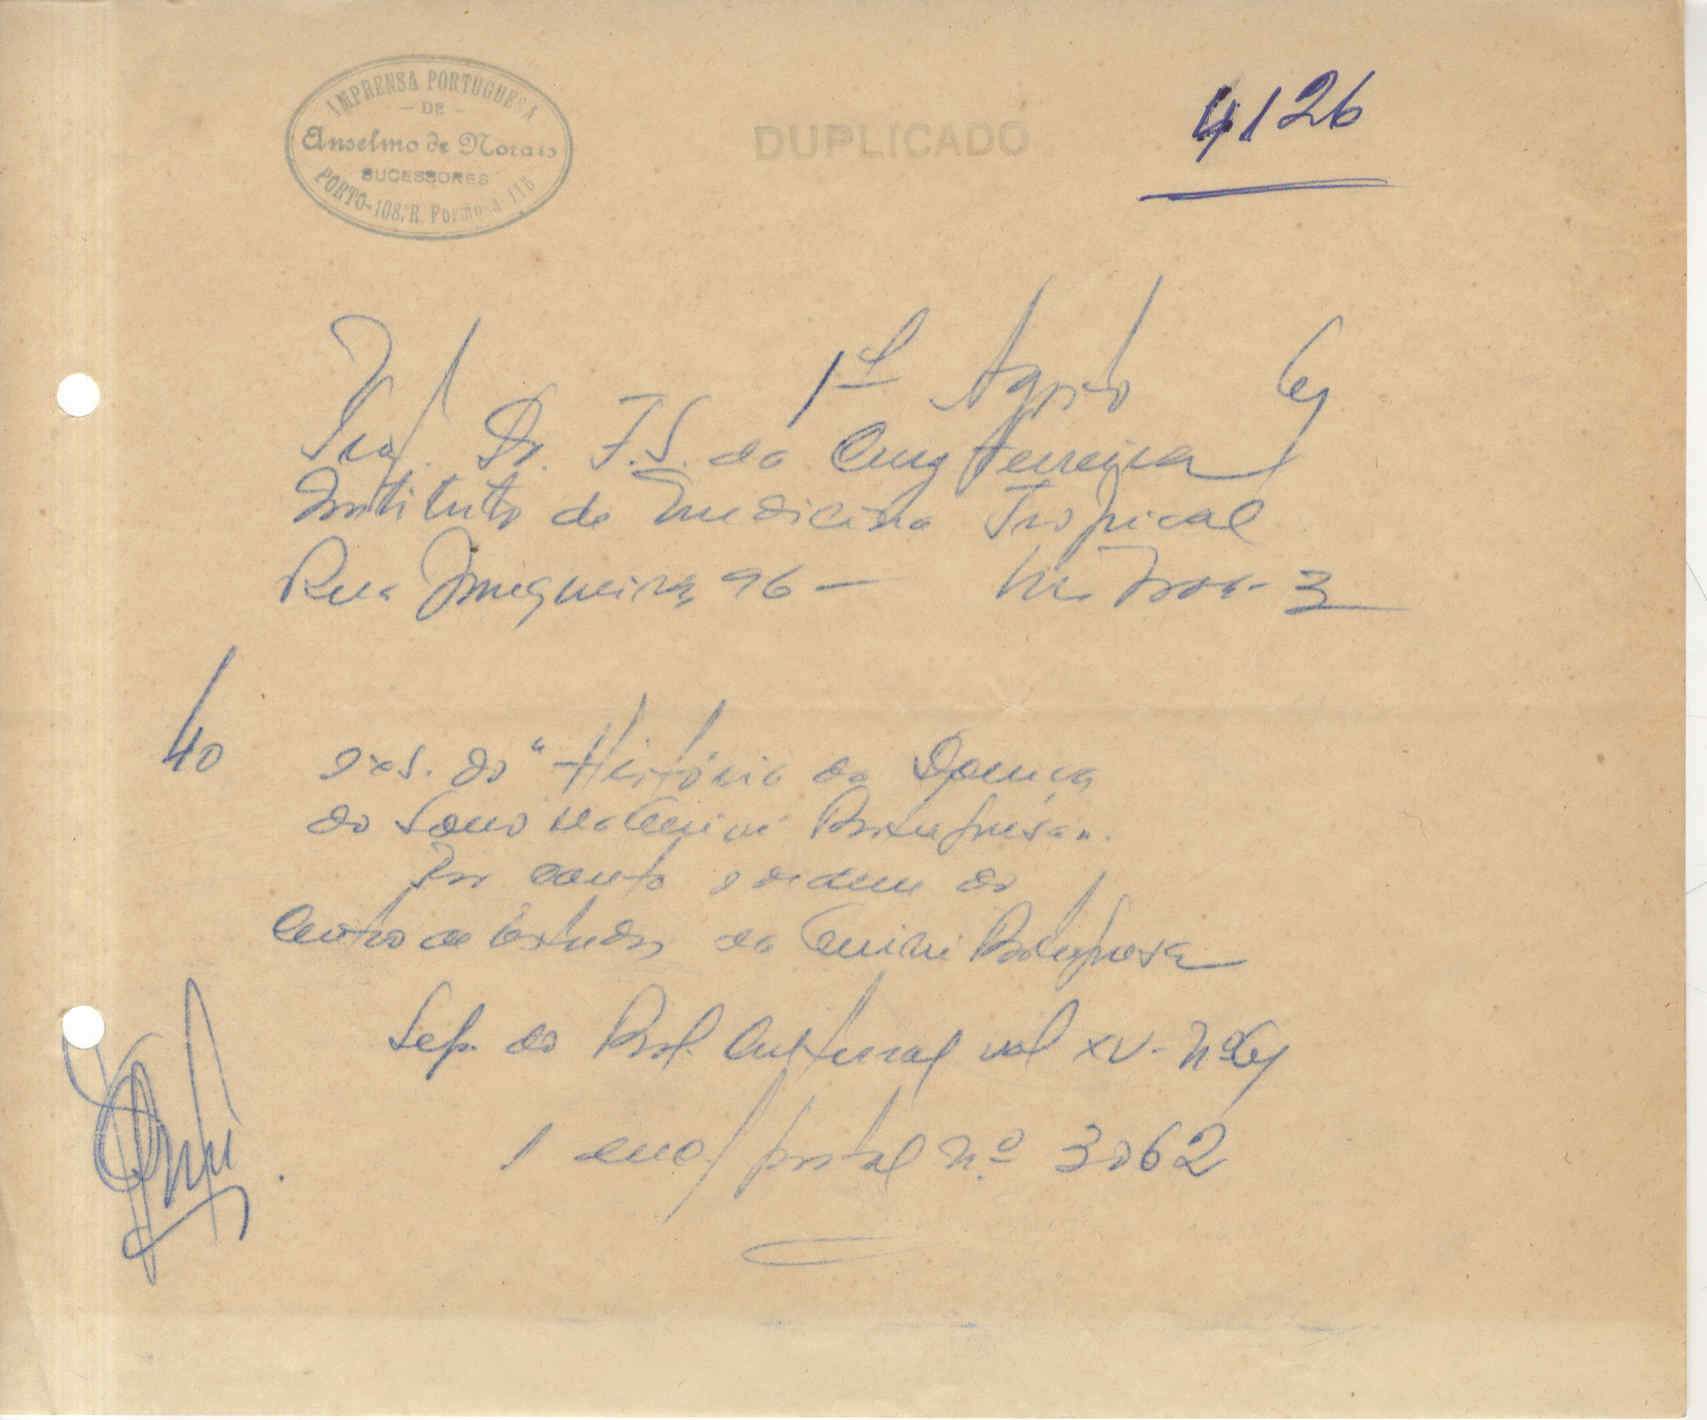 IMPRENSA PORTUGUESA
- DE -
Anselmo de Morais
SUCESSORES
PORTO-108, R. Formosa 116
DUPLICADO
4126
1 Agosto 61
Prof. Dr. F.S. da Cruz Ferreira
Instituto de Medicina Tropical
Rua Junqueira, 96 - Lisboa - 3
40 exs. do "História da Doença
do Sono na Guiné Portuguesa".
Por conta e ordem do
Centro de Estudos da Guiné Portuguesa
Sep. do Bol. Cultural vol XV - nº
1 enc/ postal nº 3062